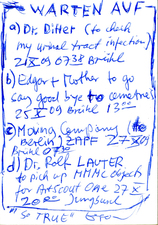 WARTEN AUF
a) Dr. Ditter (to check
my urinal tract infection)
21 X 09 0738 Brühl
b) Edgar + Mother to go
say good bye to
25 X 09 Brühl 13 00
c) Moving Company
Berlin) ZAPF 27 X 09
Brühl
d) Dr. Rolf LAUTER
to pick up HMMC objects
for Artscout One 27 X
20 00 Jungbusch
"SO TRUE"